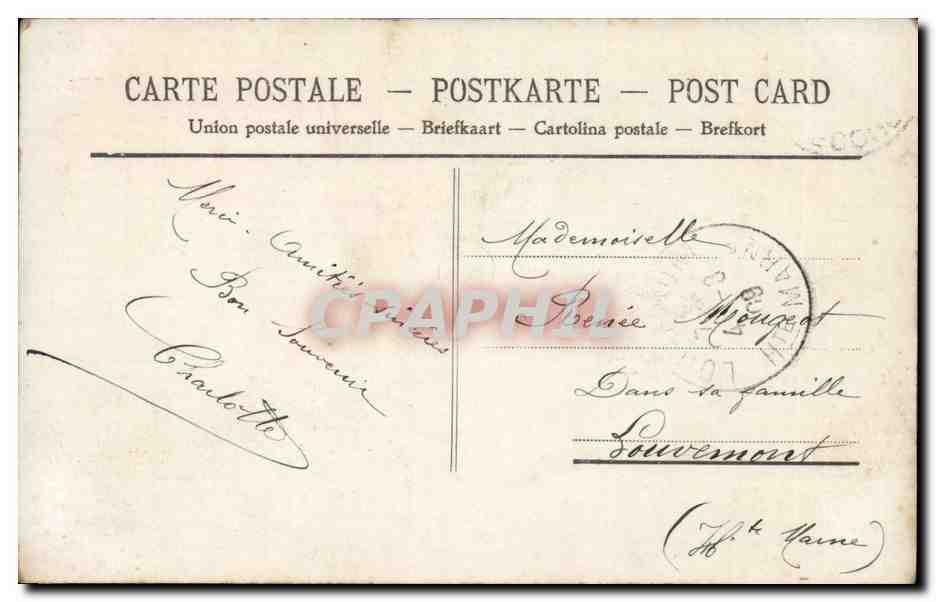 CARTE POSTALE — POSTKARTE — POST CARD
Union postale universelle — Briefkaart — Cartolina postale — Brefkort
Merci. Amitiés sincères
Bon Souvenir
Charlotte
Mademoiselle
Renée Mougeot
Dans sa famille
Louvemont
(Hte Marne)
CRAPHIL
HTE MARNE
09